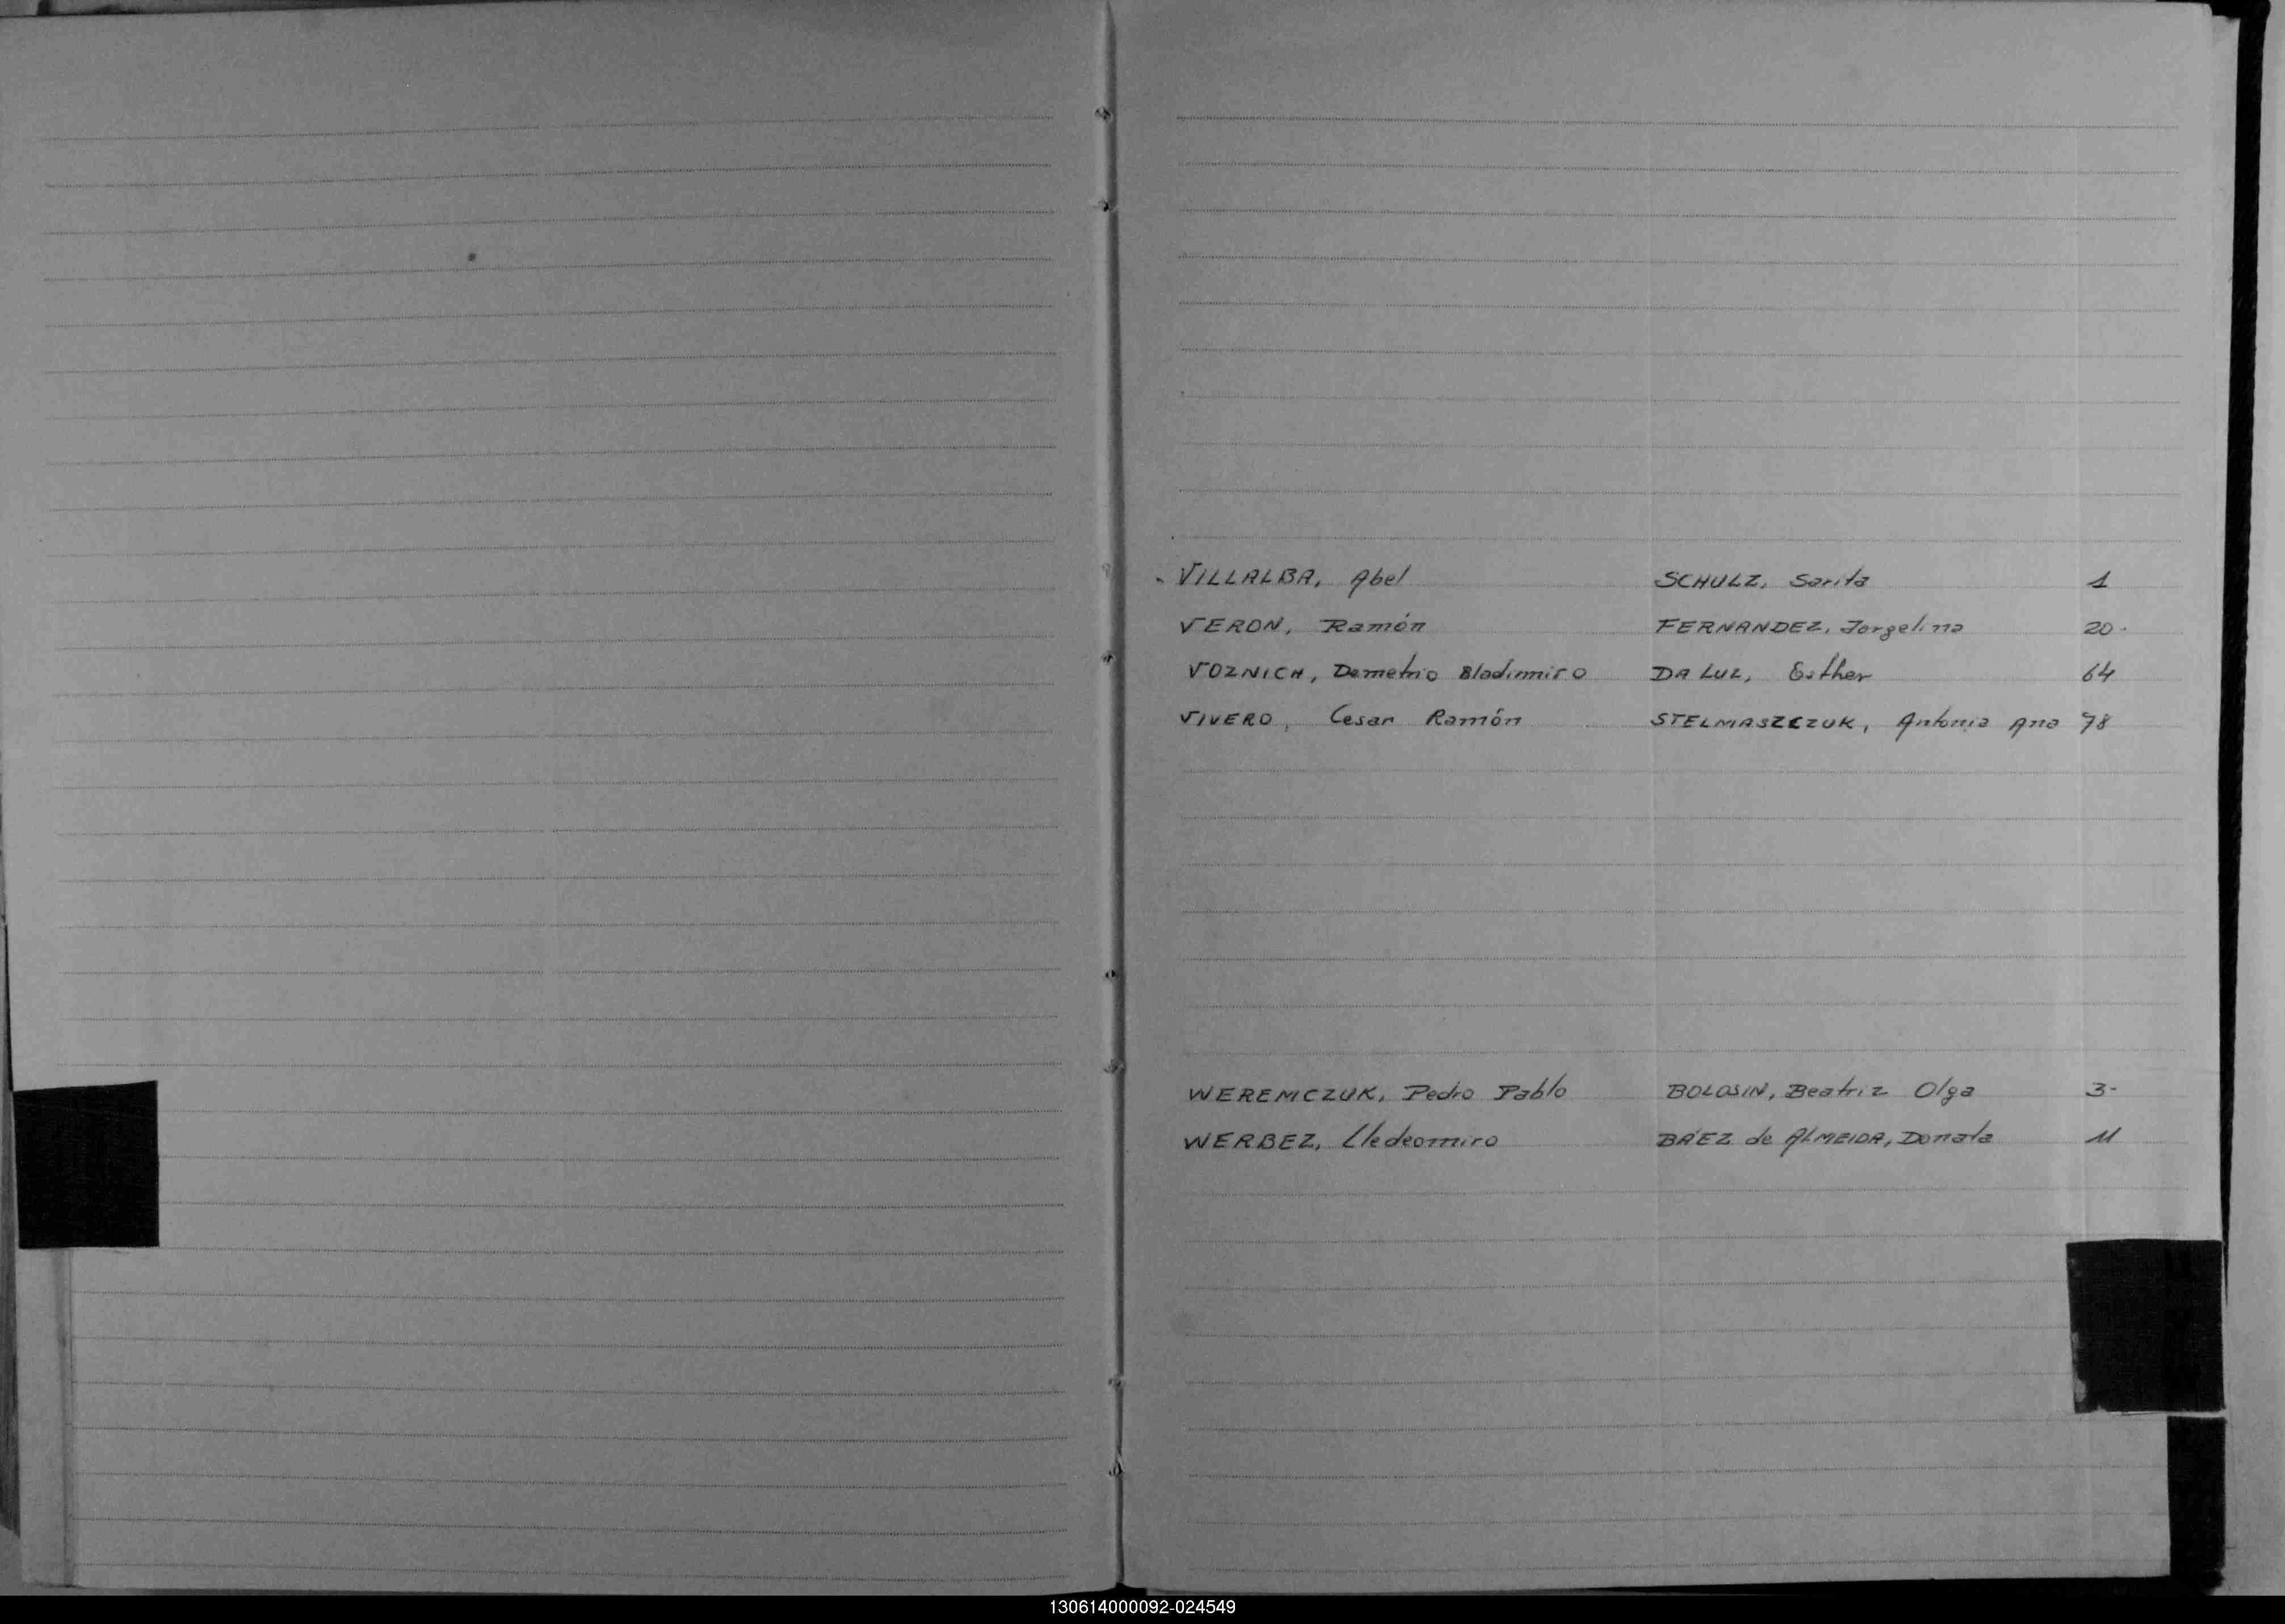 VILLALBA, Abel SCHULZ, Sarita 1
VERON, Ramón FERNANDEZ, Jorgelina 20-
VOZNICH, Demetrio Bladimiro DA LUZ, Esther 64
VIVERO, Cesar Ramón STELMASZCZUK, Antonia Ana 78
WEREMCZUK, Pedro Pablo BOLOSIN, Beatriz Olga 3-
WERBEZ, Lledeomiro BÁEZ de ALMEIDA, Donata 11
130614000092-024549